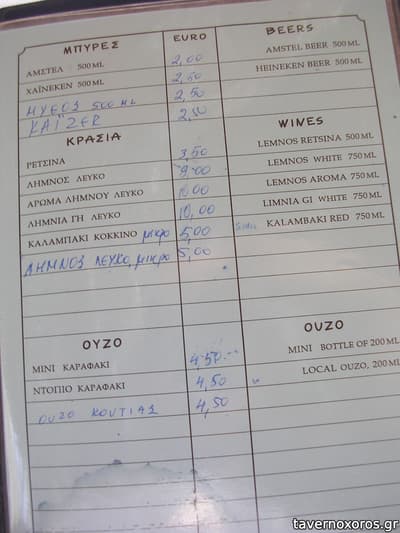 ΜΠΥΡΕΣ EURO BEERS
ΑΜΣΤΕΛ 500 ML 2,00 AMSTEL BEER 500 ML
ΧΑΪΝΕΚΕΝ 500 ML 2,50 HEINEKEN BEER 500 ML
ΜΥΘΟΣ 500 ML 2,50
ΚΑΪΖΕR 2,50
ΚΡΑΣΙΑ WINES
ΡΕΤΣΙΝΑ 3,50 LEMNOS RETSINA 500 ML
ΛΗΜΝΟΣ ΛΕΥΚΟ 9,00 LEMNOS WHITE 750 ML
ΑΡΩΜΑ ΛΗΜΝΟΥ ΛΕΥΚΟ 10,00 LEMNOS AROMA 750 ML
ΛΗΜΝΙΑ ΓΗ ΛΕΥΚΟ 10,00 LIMNIA GI WHITE 750 ML
ΚΑΛΑΜΠΑΚΙ ΚΟΚΚΙΝΟ μικρο 5,00 KALAMBAKI RED 750 ML
ΛΗΜΝΟΣ ΛΕΥΚΟ, μικρο 5,00
ΟΥΖΟ OUZO
ΜΙΝΙ ΚΑΡΑΦΑΚΙ 4,50 MINI BOTTLE OF 200 ML
ΝΤΟΠΙΟ ΚΑΡΑΦΑΚΙ 4,50 LOCAL OUZO, 200 ML
ΟΥΖΟ ΚΟΥΤΙΑΣ 4,50
tavernoxoros.gr